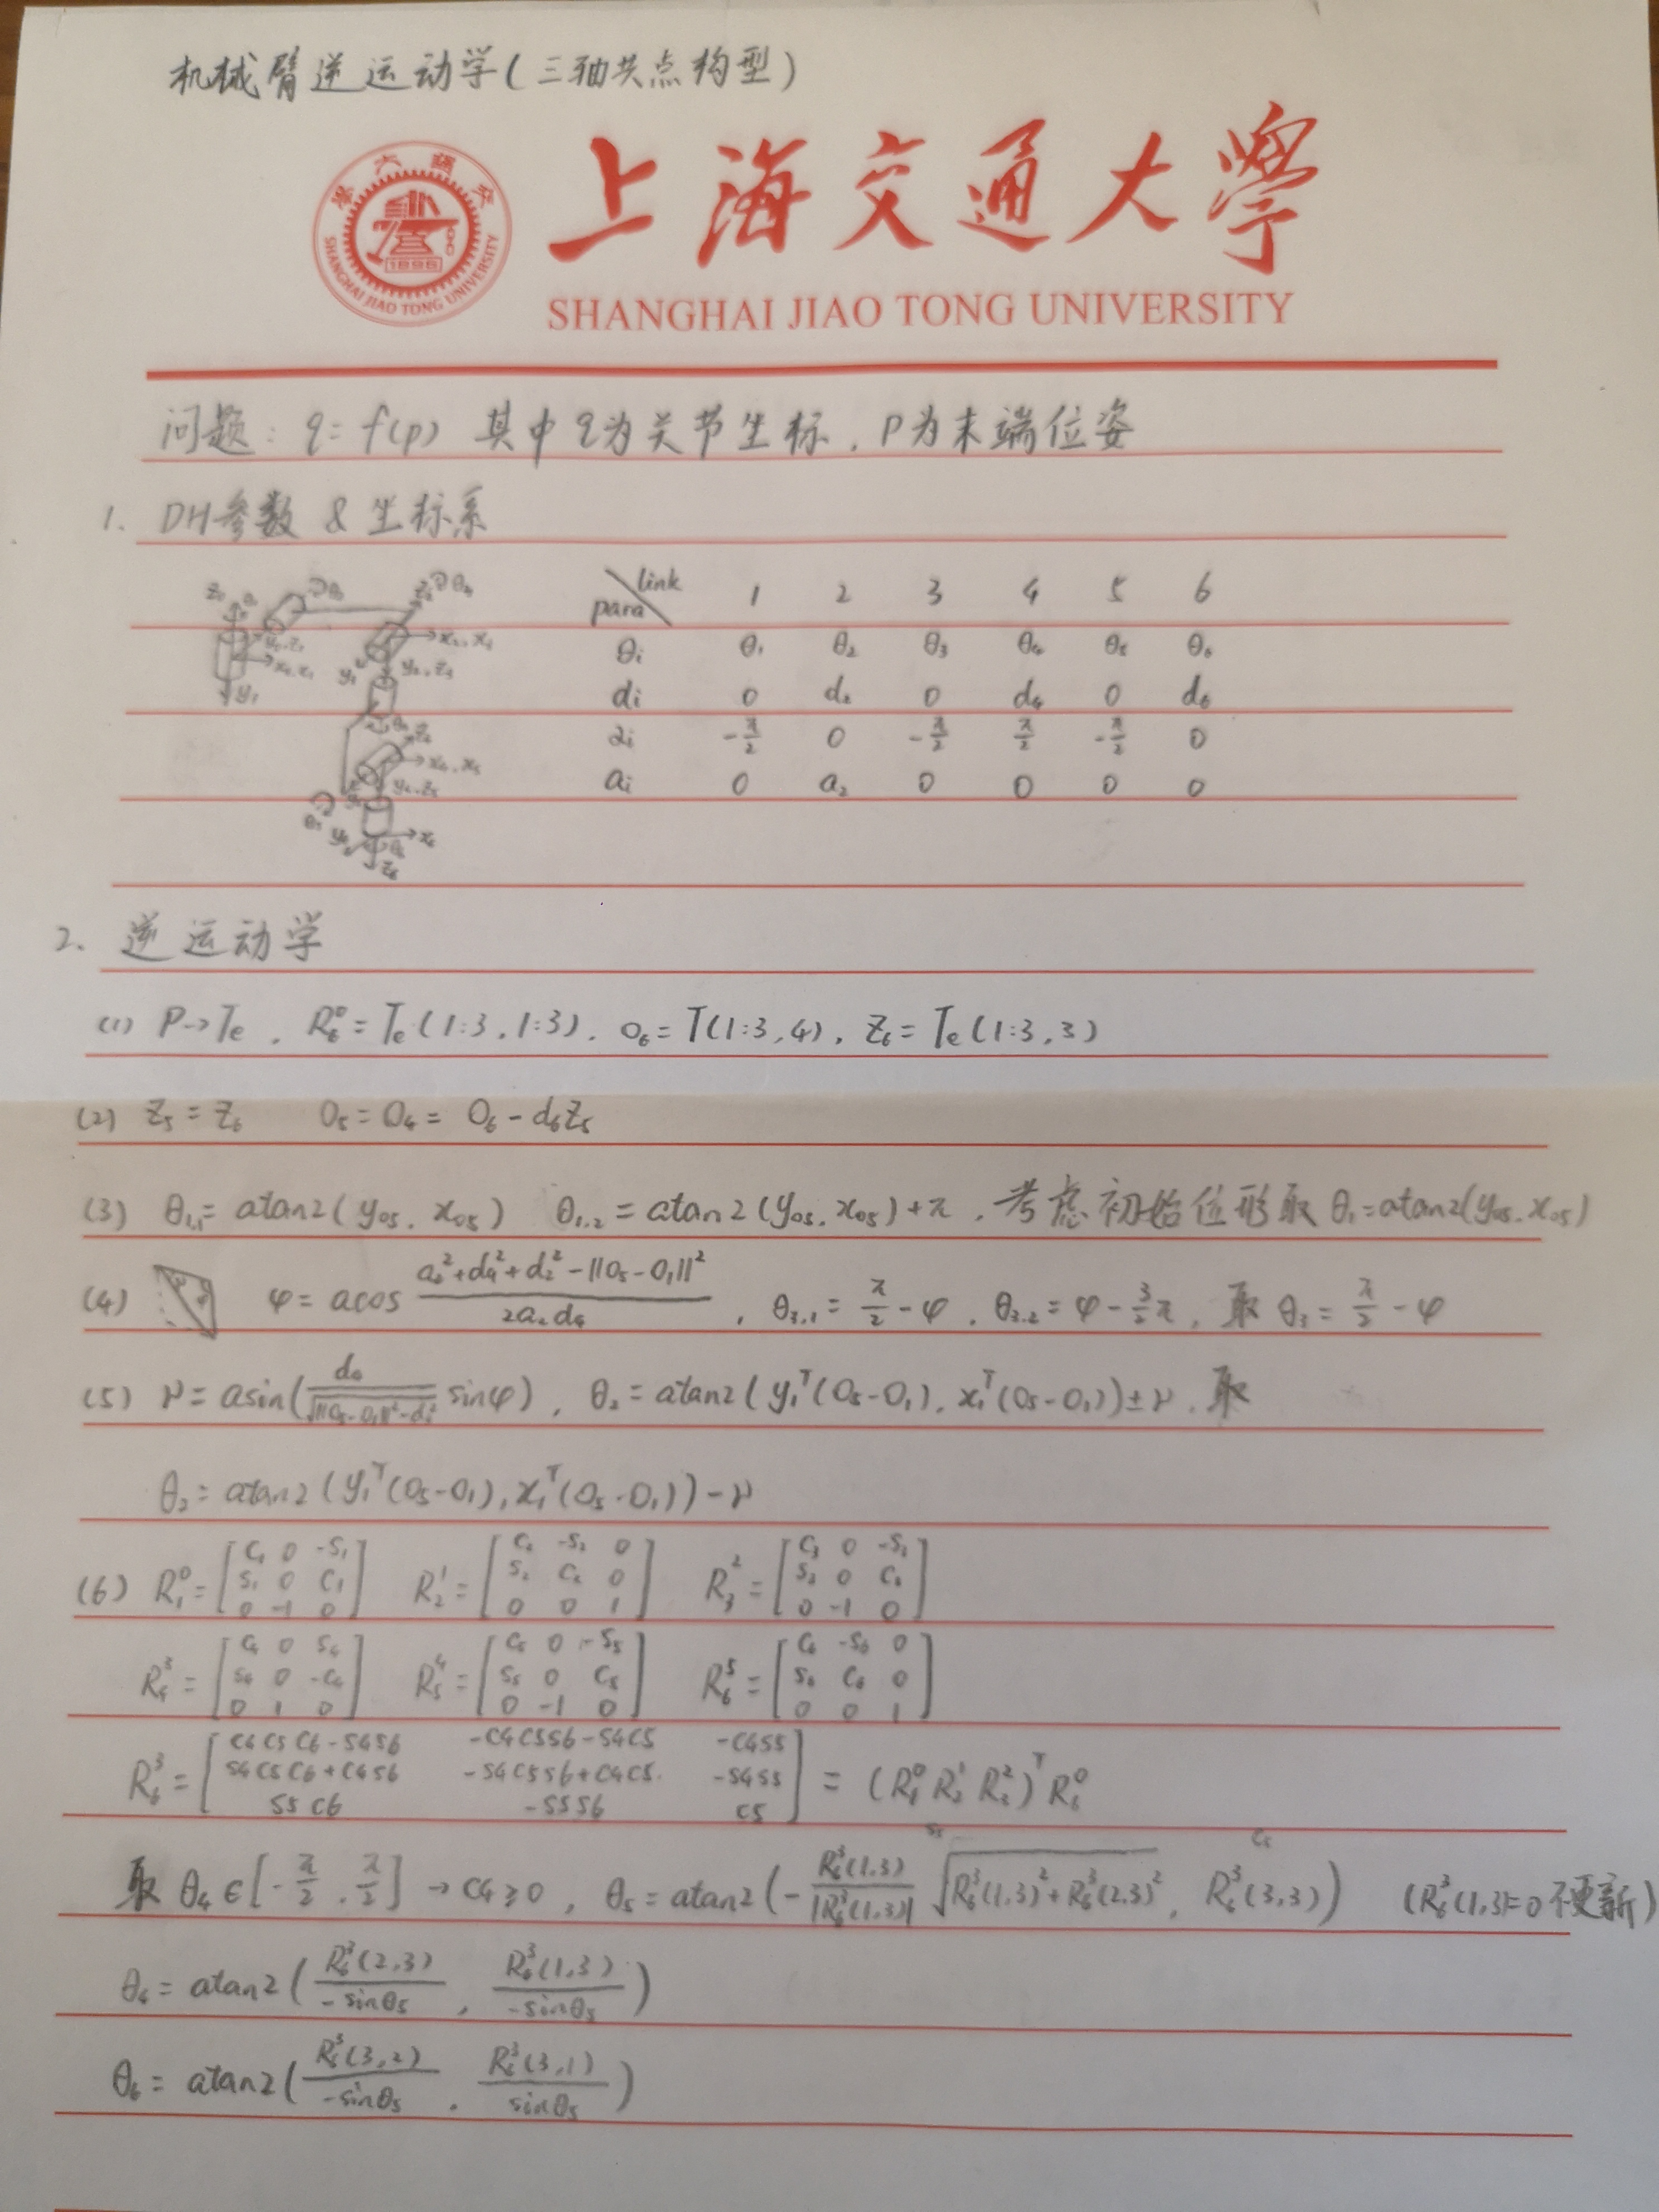 机械臂逆运动学(三轴共点构型)
上海交通大學
SHANGHAI JIAO TONG UNIVERSITY
1896
SHANGHAI JIAO TONG UNIVERSITY
问题: q=f(p) 其中q为关节坐标,P为末端位姿
1. DH参数 & 坐标系
para\link 1 2 3 4 5 6
θi θ₁ θ₂ θ₃ θ₄ θ₅ θ₆
di 0 d₂ 0 d₄ 0 d₆
αi -π/2 0 -π/2 π/2 -π/2 0
ai 0 a₂ 0 0 0 0
2. 逆运动学
(1) P→Te, R₆⁰=Te(1:3,1:3). o₆=T(1:3,4), Z₆=Te(1:3,3)
(2) Z₅=Z₆ O₅=O₄=O₆-d₆Z₅
(3) θ₁,₁=atan2(y₀₅, x₀₅) θ₁,₂=atan2(y₀₅, x₀₅)+π, 考虑初始位形取θ₁=atan2(y₀₅, x₀₅)
(4) φ=acos (a₂²+d₄²+d₂²-||O₅-O₁||²)/(2a₂d₄), θ₃,₁=π/2-φ, θ₃,₂=φ-3/2π, 取θ₃=π/2-φ
(5) γ=asin(d₄/√(||O₅-O₁||²-d₂²) sinφ), θ₂=atan2(y₁ᵀ(O₅-O₁), x₁ᵀ(O₅-O₁))±γ, 取
θ₂=atan2(y₁ᵀ(O₅-O₁), x₁ᵀ(O₅-O₁))-γ
(6) R₁⁰=[C₁ 0 -S₁; S₁ 0 C₁; 0 -1 0] R₂¹=[C₂ -S₂ 0; S₂ C₂ 0; 0 0 1] R₃²=[C₃ 0 -S₃; S₃ 0 C₃; 0 -1 0]
R₄³=[C₄ 0 S₄; S₄ 0 -C₄; 0 1 0] R₅⁴=[C₅ 0 -S₅; S₅ 0 C₅; 0 -1 0] R₆⁵=[C₆ -S₆ 0; S₆ C₆ 0; 0 0 1]
R₆³=[C4C5C6-S4S6 -C4C5S6-S4C5 -C4S5; S4C5C6+C4S6 -S4C5S6+C4C5 -S4S5; S5C6 -S5S6 C5]=(R₁⁰R₂¹R₃²)ᵀR₆⁰
取θ₄∈[-π/2, π/2]→C4≥0, θ₅=atan2(-R₆³(1,3)/|R₆³(1,3)| √(R₆³(1,3)²+R₆³(2,3)²), R₆³(3,3)) (R₆³(1,3)=0不更新)
θ₄=atan2(R₆³(2,3)/-sinθ₅, R₆³(1,3)/-sinθ₅)
θ₆=atan2(R₆³(3,2)/-sinθ₅, R₆³(3,1)/sinθ₅)